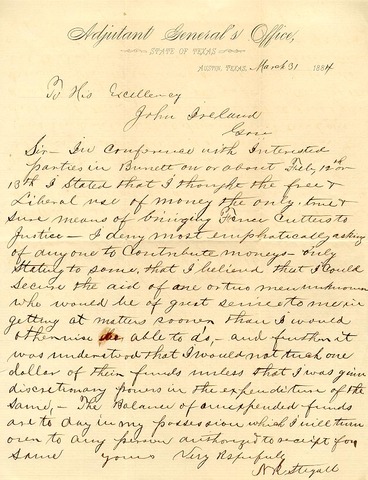 Adjutant General's Office,
STATE OF TEXAS
AUSTIN, TEXAS, March 31 1884
To His Excellency
John Ireland
Gov
Sir - In conference with Interested
parties in Burnett on or about Feby 12 or
13th I Stated that I thought the free &
Liberal use of money the only, true &
Sure means of bringing Fence Cutters to
Justice - I deny most emphatically asking
of anyone to Contribute moneys - only
Stating to some, that I believed that I Could
Secure the aid of one or two men unknown
who would be of great service to me in
getting at matters sooner than I would
otherwise be able to do, - and further it
was understood that I would not tuch one
dollar of their funds unless that I was given
discretionary powers in the expenditure of the
Same, - The Balance of unexpended funds
are to day in my possession which I will turn
over to any person authorized to receipt for
Same yours Very Respfully
Stegall